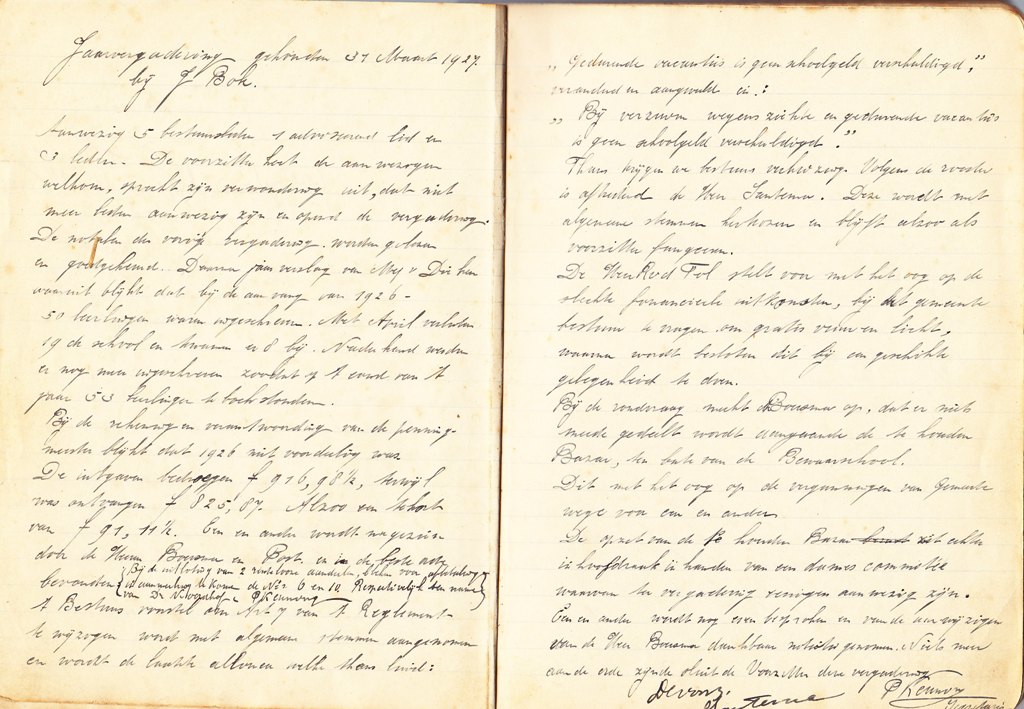 Jaarvergadering gehouden 31 Maart 1927
bij J Bok.
Aanwezig 5 bestuursleden 1 adviseerend lid en
3 leden. De voorzitter heet de aanwezigen
welkom, spreekt zijn verwondering uit, dat niet
meer leden aanwezig zijn en opend de vergadering.
De notulen der vorige vergadering worden gelezen
en goedgekeurd. Daarna jaarverslag van Mej
waaruit blijkt dat bij de aanvang van 1926 -
50 leerlingen waren ingeschreven. Met April verlieten
19 de school en kwamen er 8 bij. Naderhand werden
er nog meer ingeschreven zoodat op 't eind van 't
jaar 53 leerlingen te boek stonden.
Bij de rekening en verantwoording van de penning-
meester blijkt dat 1926 niet voordeelig was
De uitgaven bedroegen f 916,98½, terwijl
was ontvangen f 825,87. Alzoo een tekort
van f 91,11½. Een en ander wordt nagezien
door de Heeren Bouma en Post. en in de beste orde
bevonden (Bij de uitloting van 2 rentelooze aandeelen bleken voor aflossing
in aanmerking te komen de Nrs. 6 en 10. Respectievelijk ten name
van P Keuning)
't Bestuurs voorstel om Art 7 van 't Reglement
te wijzigen wordt met algemeene stemmen aangenomen
en wordt de laatste alinea welke thans luid:
„ Gedurende vacantius is geen schoolgeld verschuldigd,"
veranderd en aangevuld in:
„ Bij verzuim wegens ziekte en gedurende vacantius
is geen schoolgeld verschuldigd".
Thans krijgen we bestuurs verkiezing. Volgens de rooster
is aftredend de Heer Santema. Deze wordt met
algemeene stemmen herkozen en blijft alzoo als
voorzitter fungeeren.
De Heer Red Tol stelt voor met het oog op de
slechte financieele uitkomsten, bij het gemeente
bestuur te vragen om gratis vuur en licht,
waarna wordt besloten dit bij een geschikte
gelegenheid te doen.
Bij de rondvraag merkt Bouma op, dat er niets
mede gedeelt wordt aangaande de te houden
Bazar, ten bate van de Bewaarschool.
Dit met het oog op de vergunningen van Gemeente
wege voor een en ander
De opzet van de te houden Bazar rust echter
in hoofdzaak in handen van een dames committe
waarvan ter vergadering eenigen aanwezig zijn.
Een en ander wordt nog even besproken en van de aanwijzigen
van de Heer Bouma dankbaar notitie genomen. Niets meer
aan de orde zijnde sluit de Voorzitter deze vergadering
De voorz. P Keuning
Santema Secretaris